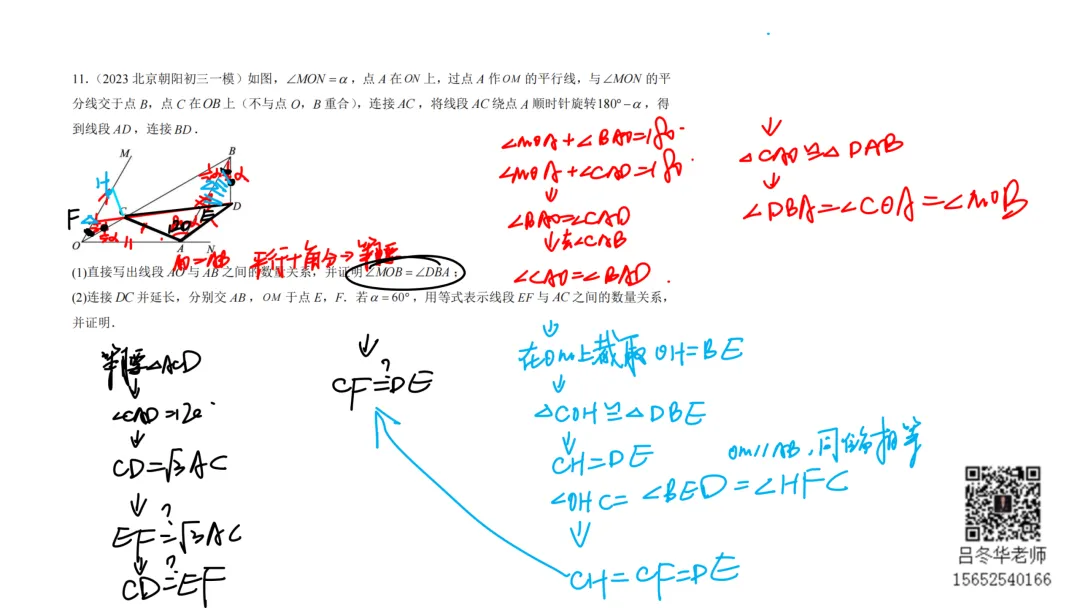 11.（2023 北京朝阳初三一模）如图，∠MON=α，点 A 在 ON 上，过点 A 作 OM 的平行线，与∠MON 的平
分线交于点 B，点 C 在 OB 上（不与点 O，B 重合），连接 AC，将线段 AC 绕点 A 顺时针旋转180°−α，得
到线段 AD，连接 BD．
M
B
H
C
D
F
E
120
O
A
N
AO=AB
平行+角分→等腰
(1)直接写出线段 AO 与 AB 之间的数量关系，并证明∠MOB=∠DBA；
(2)连接 DC 并延长，分别交 AB，OM 于点 E，F．若 α=60°，用等式表示线段 EF 与 AC 之间的数量关系，
并证明．
∠MOA+∠BAO=180°
∠MOA+∠CAD=180°
↓
∠BAO=∠CAD
↓去∠CAB
∠CAO=∠BAD．
↓
△CAO≌△DAB
↓
∠DBA=∠COA=∠MOB
等腰△ACD
↓
∠CAD=120°
↓
CD=√3AC
↓ ?
EF=√3AC
↓ ?
CD=EF
↓
?
CF=DE
↓
在OM上截取 OH=BE
↓
△COH≌△DBE
↓
CH=DE
OM∥AB，同位角相等
∠OHC=∠BED=∠HFC
↓
CH=CF=DE
吕冬华老师
15652540166